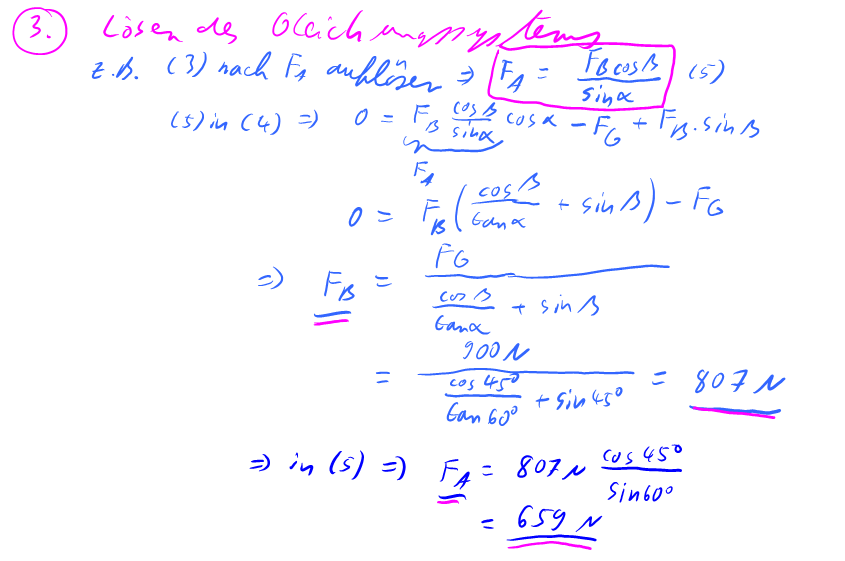 3. Lösen des Gleichungssystems
z.B. (3) nach F_A auflösen ⇒ F_A = F_B cosβ / sinα (5)
(5) in (4) ⇒ 0 = F_B cosβ / sinα cosα − F_G + F_B · sinβ
F_A
0 = F_B ( cosβ / tanα + sinβ ) − F_G
⇒ F_B = F_G / ( cosβ / tanα + sinβ )
= 900 N / ( cos 45° / tan 60° + sin 45° ) = 807 N
⇒ in (5) ⇒ F_A = 807 N cos 45° / sin 60°
= 659 N